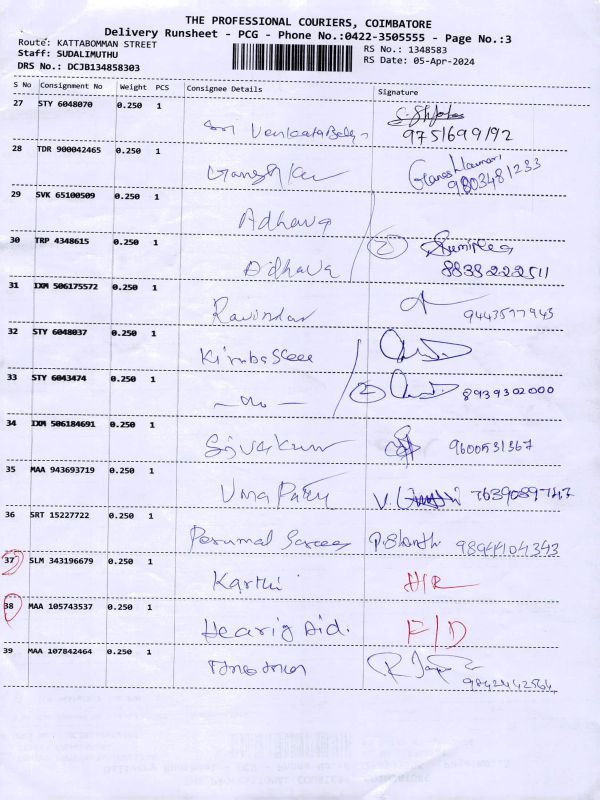 THE PROFESSIONAL COURIERS, COIMBATORE
Delivery Runsheet - PCG - Phone No.:0422-3505555 - Page No.:3
Route: KATTABOMMAN STREET
Staff: SUDALIMUTHU
DRS No.: DCJB134858303
RS No.: 1348583
RS Date: 05-Apr-2024
S No Consignment No Weight PCS Consignee Details Signature
27 STY 6048070 0.250 1
9751699192
28 TDR 900042465 0.250 1
9803481233
29 SVK 65100509 0.250 1
Adhava
30 TRP 4348615 0.250 1
Adhava 2
8838222511
31 IXM 506175572 0.250 1
Ravindar 9443577945
32 STY 6048037 0.250 1
33 STY 6043474 0.250 1
2 8939302000
34 IXM 506184691 0.250 1
Sivakumar 9600531367
35 MAA 943693719 0.250 1
Uma
36 SRT 15227722 0.250 1
Perumal 9894404343
37 SLM 343196679 0.250 1
Karthi
38 MAA 105743537 0.250 1
Hearig Aid. F/D
39 MAA 107842464 0.250 1
9842442564